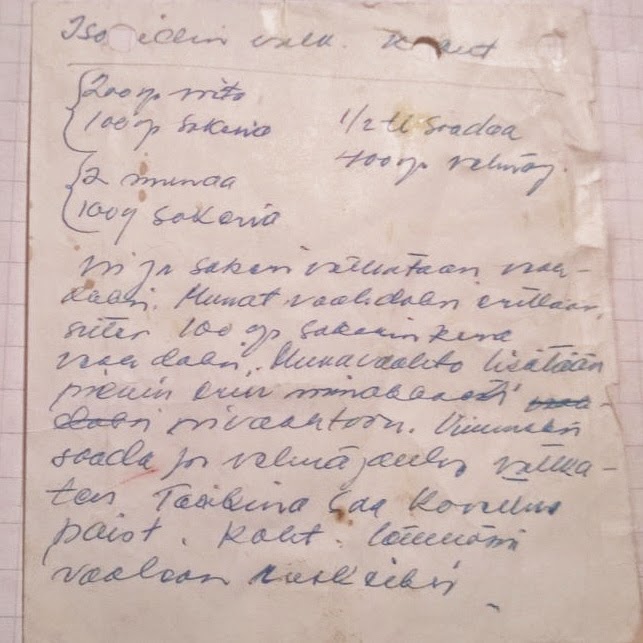 Isoäidin valk. kakut
200 gr voita
100 gr sokeria
1/2 tl soodaa
400 gr vehnäj.
2 munaa
100 g sokeria
Voi ja sokeri vatkataan vaah-
doksi. Munat vaahdoksi erillään,
sitten 100 gr sokerin kera
vaahdoksi. Munavaahto lisätään
pienin erin
voivaahtoon. Viimeksi
sooda ja vehnäjauho vatka-
ten Taikina saa
paist. Koht. lämmössä
vaalean ruskeiksi